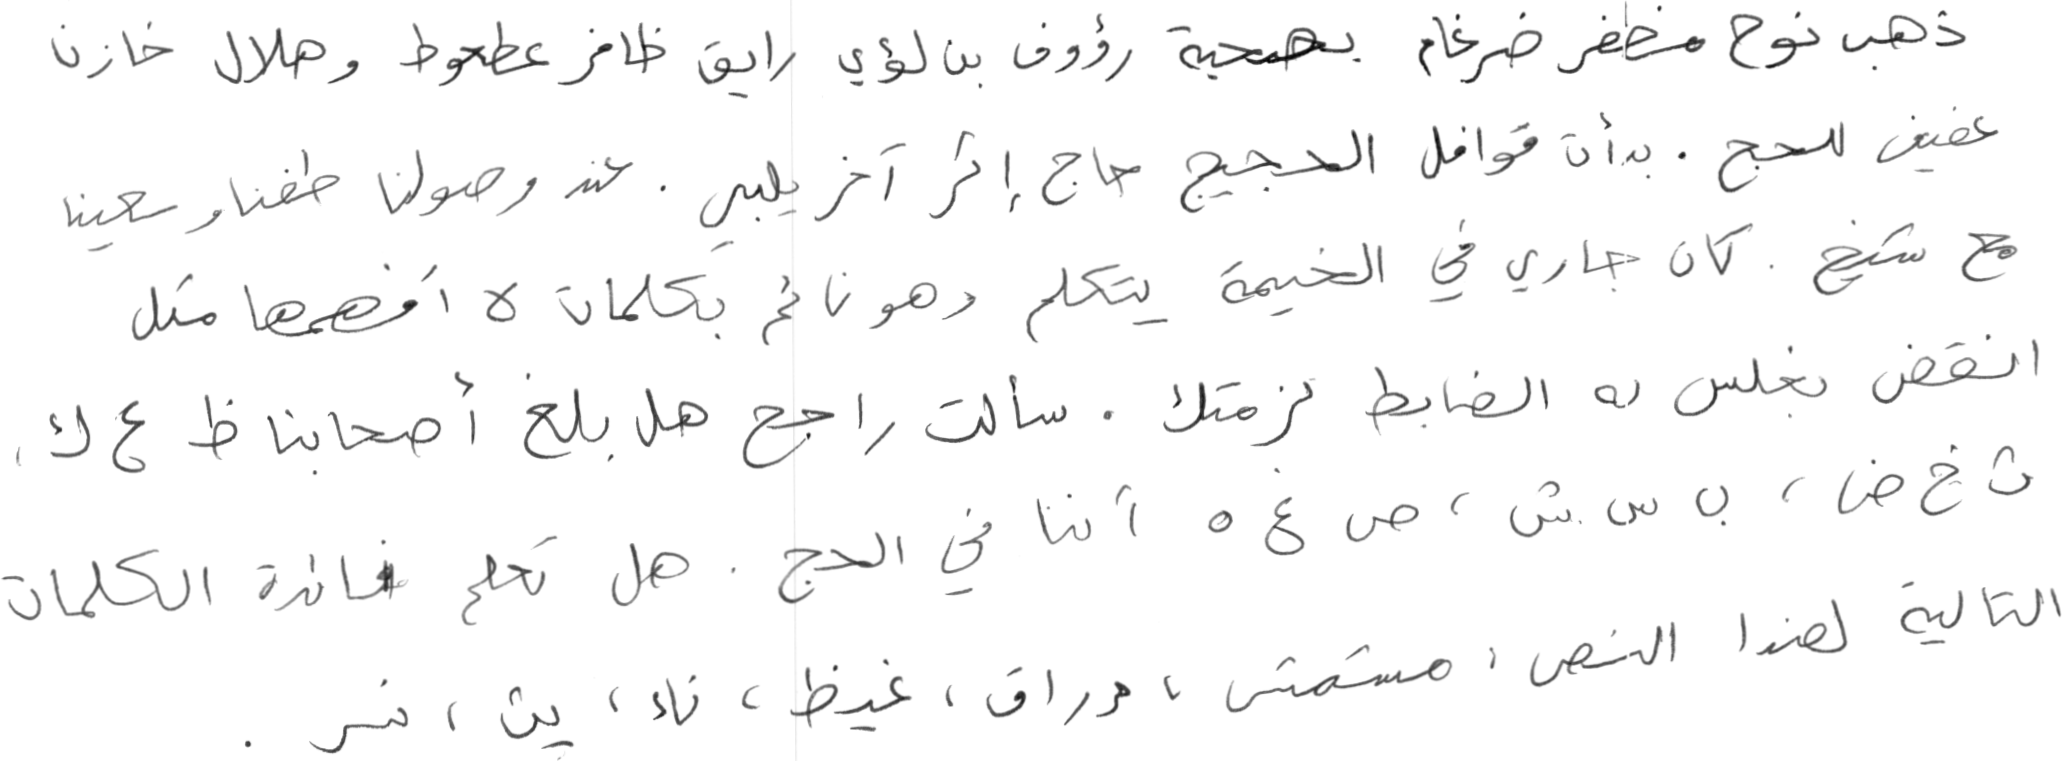 ذهب نوح مظفر ضرغام بصحبة رؤوف بن لؤي رايق ظافر عطعوط وهلال خازن
عفيف للحج . بدأت قوافل الحجيج حاج إثر آخر يلبي . عند وصولنا طفنا وسعينا
مع شيخ . كان جاري في الخيمة يتكلم وهو نائم بكلمات لا أفهمها مثل
انقض بغلس له الضابط نزمتك . سألت راجح هل بلغ أصحابنا ظ ع ك ،
ث خ ض ، ب س ش ، ص غ ه أننا في الحج . هل تعلم فائدة الكلمات
التالية لهذا النص ، مستمش ، دراق ، غيظ ، ناد ، يث ، نسر .